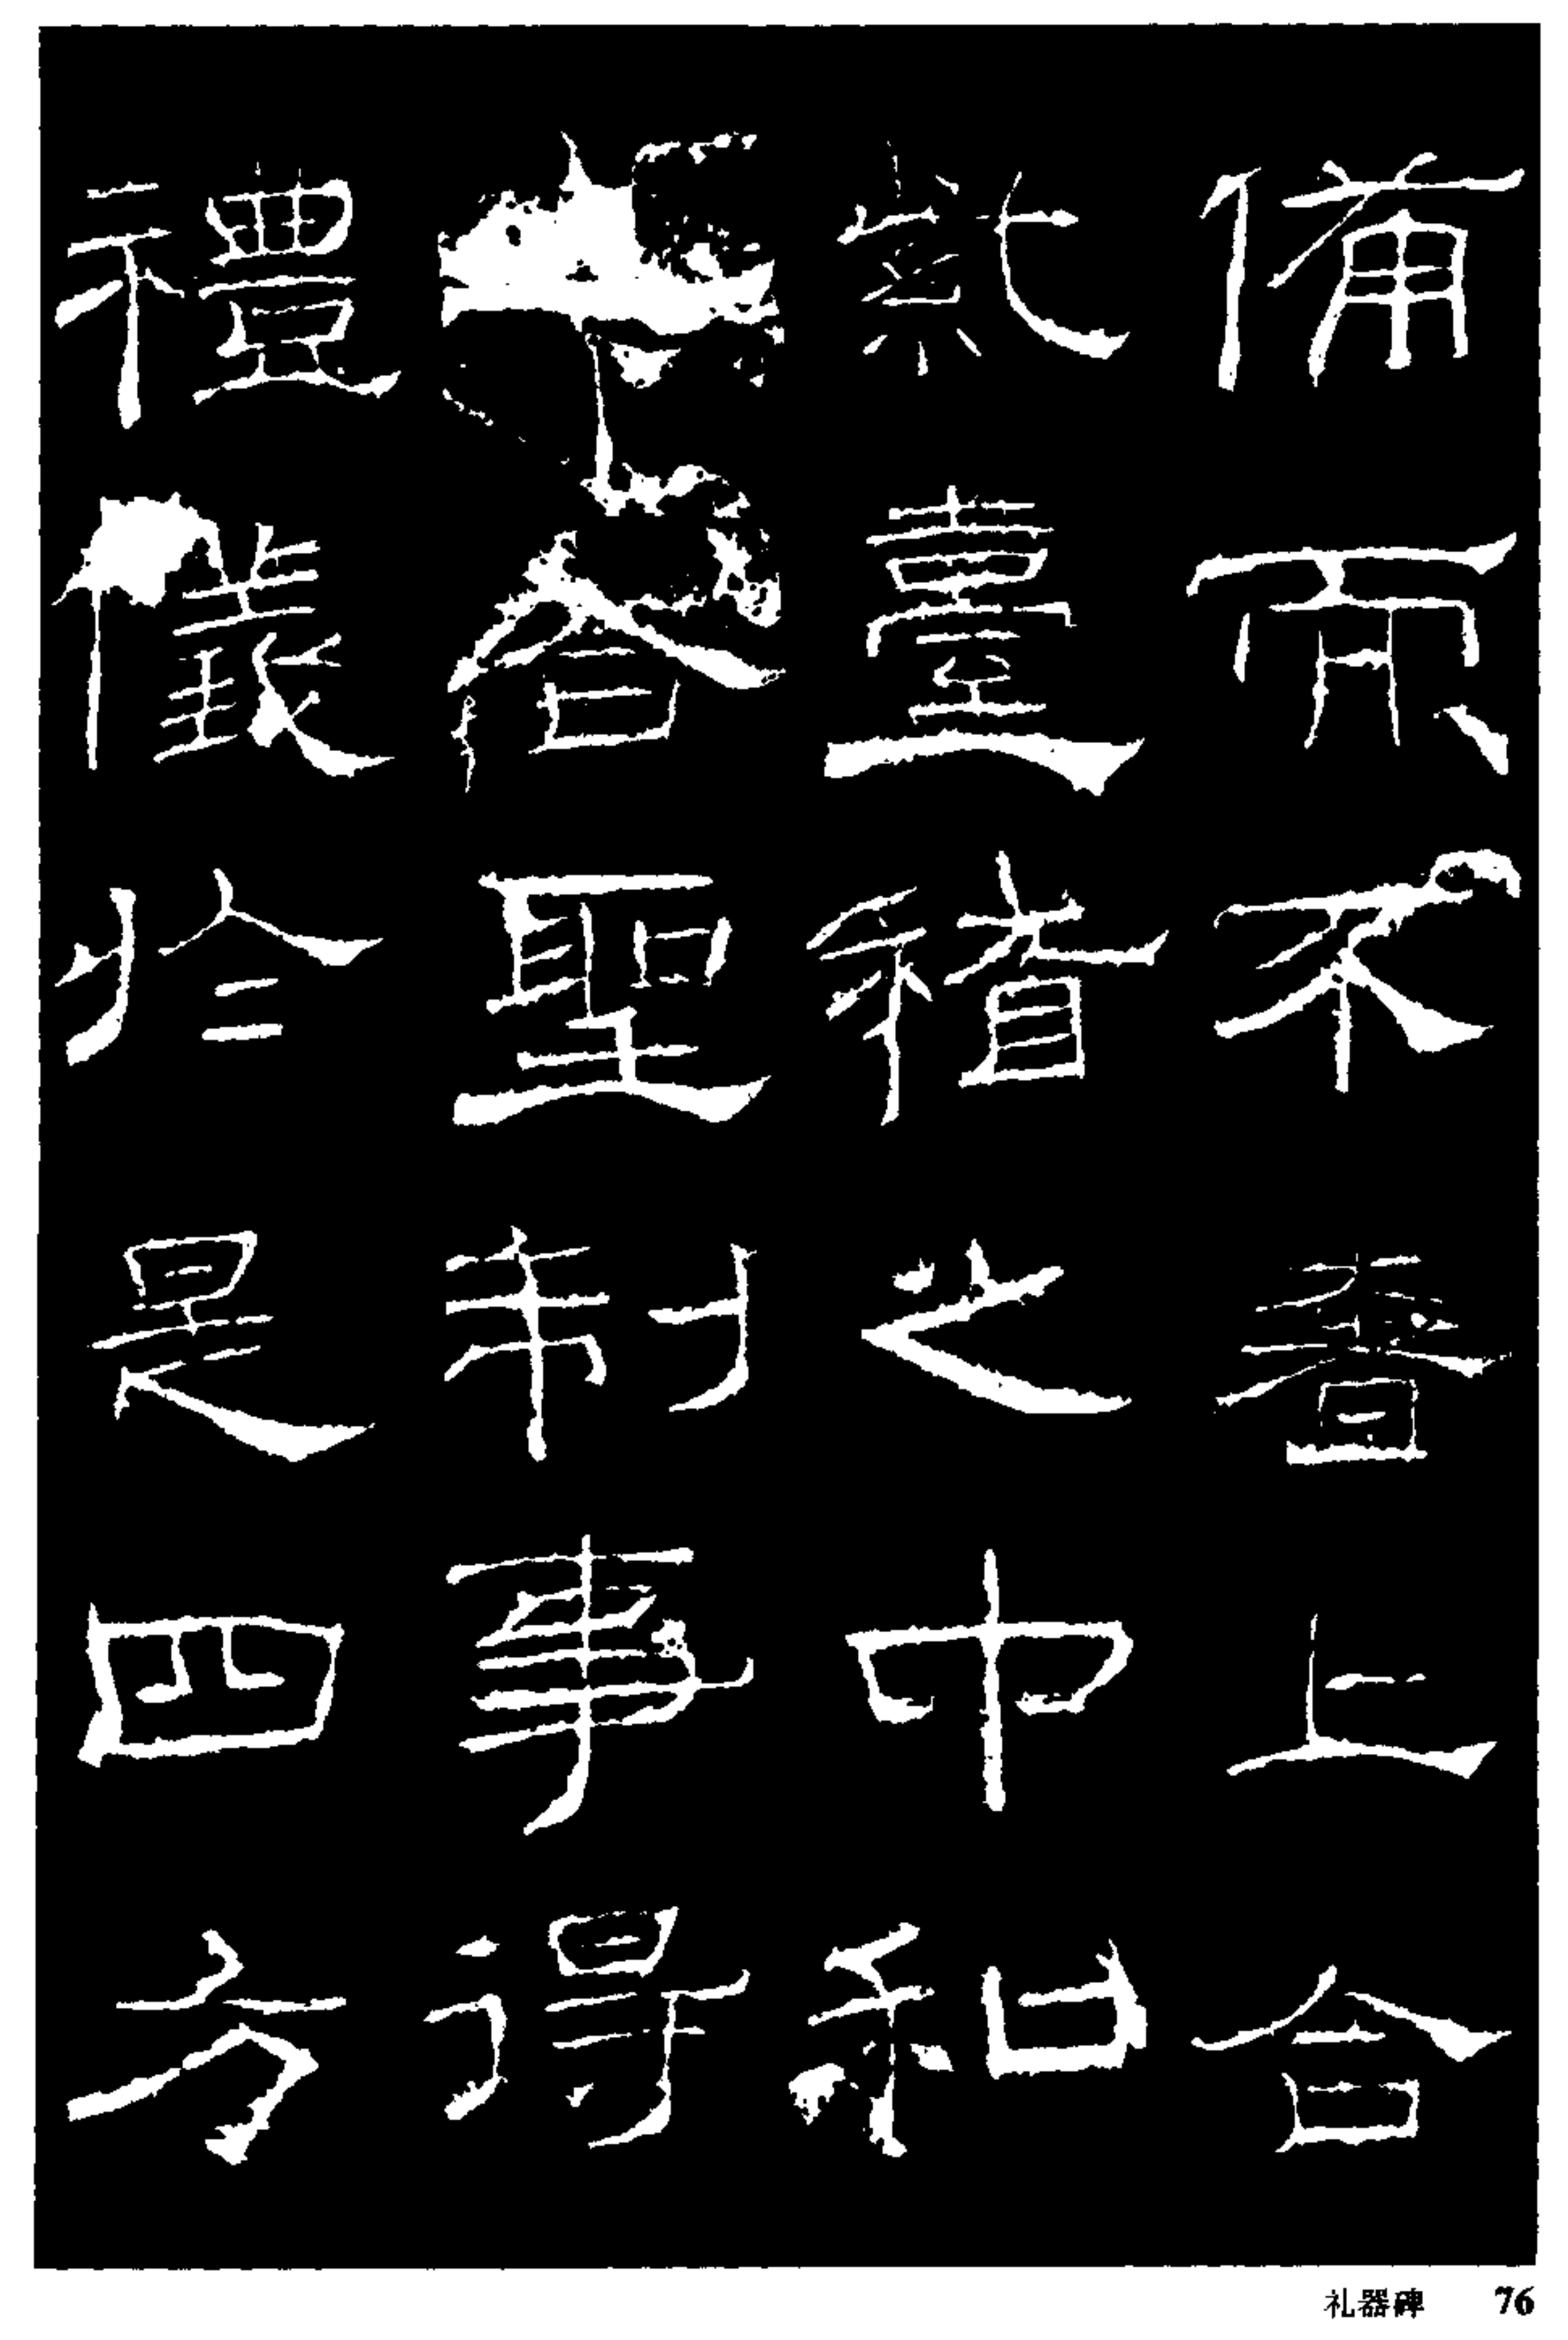 備而不奢上合
紫臺稽之中和
下合聖制事得
禮儀於是四方
礼器碑 76